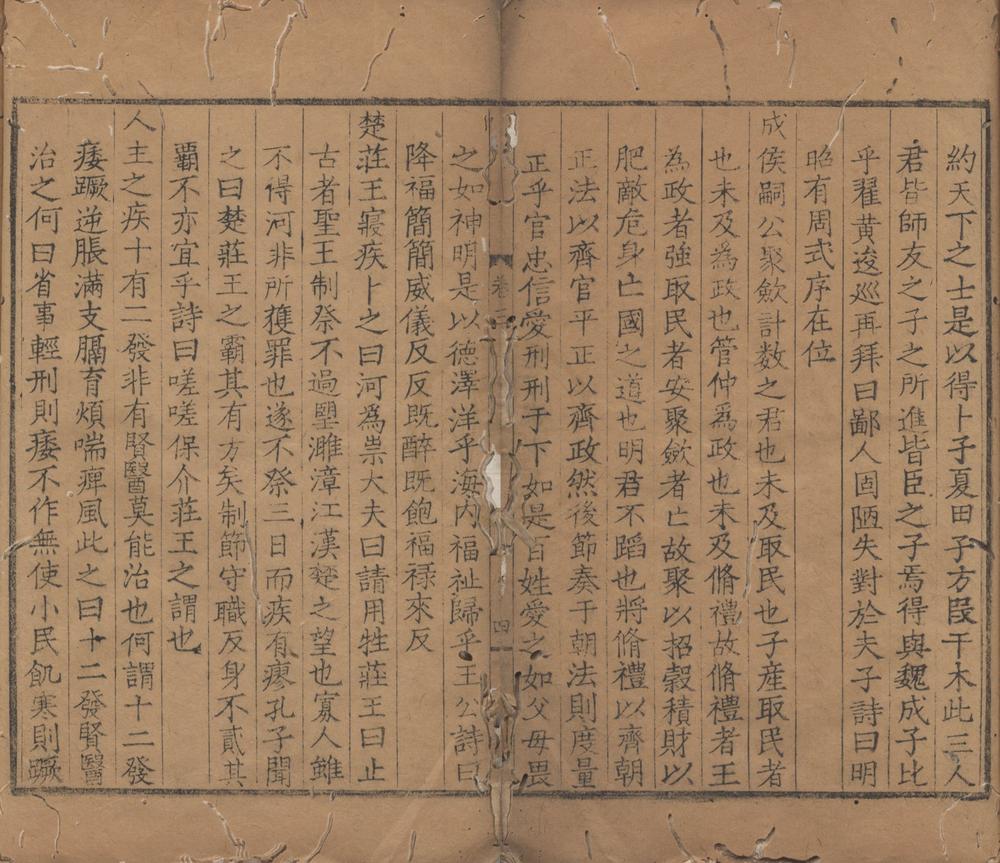 約天下之士是以得卜子夏田子方段干木此三人
君皆師友之子之所進皆臣之子焉得與魏成子比
乎翟黃逡巡再拜曰鄙人固陋失對於夫子詩曰明
昭有周式序在位
成侯嗣公聚歛計數之君也未及取民也子產取民者
也未及為政也管仲為政也未及脩禮故脩禮者王
為政者強取民者安聚歛者亡故聚以招穀積財以
肥敵危身亡國之道也明君不蹈也將脩禮以齊朝
正法以齊官平正以齊政然後節奏于朝法則度量
正乎官忠信愛刑刑于下如是百姓愛之如父母畏
卷三
四
之如神明是以德澤洋乎海內福祉歸乎王公詩曰
降福簡簡威儀反反既醉既飽福祿來反
楚莊王寢疾卜之曰河為祟大夫曰請用牲莊王曰止
古者聖王制祭不過望濉漳江漢楚之望也寡人雖
不得河非所獲罪也遂不祭三日而疾有瘳孔子聞
之曰楚莊王之霸其有方矣制節守職反身不貳其
霸不亦宜乎詩曰嗟嗟保介莊王之謂也
人主之疾十有二發非有賢醫莫能治也何謂十二發
痿蹶逆脹滿支膈盲煩喘痺風此之曰十二發賢醫
治之何曰省事輕刑則痿不作無使小民飢寒則蹶